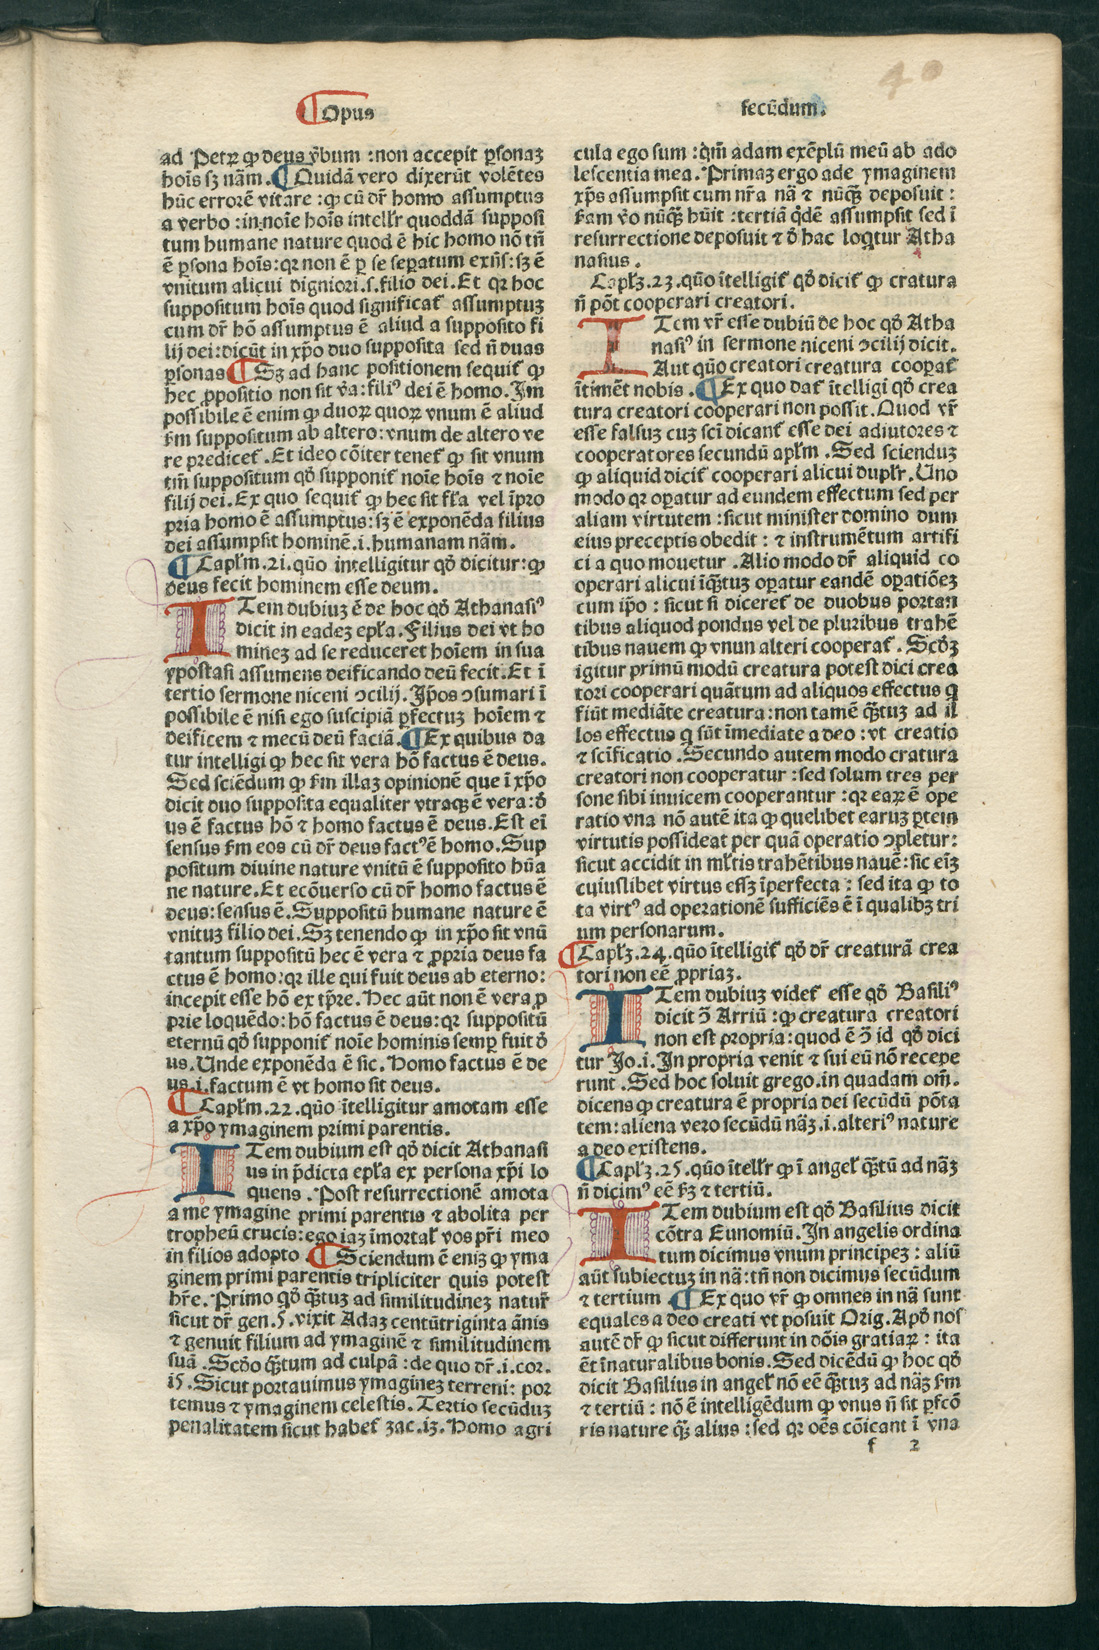 40
¶Opus
fecūdum.
ad Petrꝝ ꝙ deus v̄bum : non accepit ꝑsonaꝫ
hoīs sꝫ nām. ¶Quidā vero dixerūt volētes
hūc errorē vitare : ꝙ cū dr̄ homo assumptus
a verbo : in noīe hoīs intellr̄ quoddā supposi
tum humane nature quod ē hic homo nō tn̄
ē ꝑsona hoīs: qꝛ non ē ꝑ se seꝑatum exn̄s: sꝫ ē
vnitum alicui digniori .s. filio dei. Et qꝛ hoc
suppositum hoīs quod significat᷑ assumptuꝫ
cum dr̄ hō assumptus ē aliud a supposito fi
lij dei: dicūt in xp̄o duo supposita sed n̄ duas
ꝑsonas ¶Sꝫ ad hanc positionem sequit᷑ ꝙ
hec ꝓpositio non sit v̄a: filiꝰ dei ē homo. Im
possibile ē enim ꝙ duoꝝ quoꝝ vnum ē aliud
ẜm suppositum ab altero: vnum de altero ve
re predicet᷑. Et ideo cōiter tenet᷑ ꝙ sit vnum
tm̄ suppositum qđ supponit᷑ noīe hoīs ⁊ noīe
filij dei. Ex quo sequit᷑ ꝙ hec sit fl̄a vel īpro
pria homo ē assumptus: sꝫ ē exponēda filius
dei assumpsit hominē .i. humanam nām.
¶Capl̄m. 21. quō intelligitur qđ dicitur: ꝙ
deus fecit hominem esse deum.
ITem dubiuꝫ ē de hoc qđ Athanasiꝰ
dicit in eadeꝫ epl̄a. Filius dei vt ho
mineꝫ ad se reduceret hoīem in sua
ypostasi assumens deificando deū fecit. Et ī
tertio sermone niceni ↄcilij. Ip̄os ↄsumari ī
possibile ē nisi ego suscipiā ꝑfectuꝫ hoīem ⁊
deificem ⁊ mecū deū faciā. ¶Ex quibus da
tur intelligi ꝙ hec sit vera hō factus ē deus.
Sed sciēdum ꝙ ẜm illaꝫ opinionē que ī xp̄o
dicit duo supposita equaliter vtraqꝫ ē vera: đ
us ē factus hō ⁊ homo factus ē deus. Est eī
sensus ẜm eos cū dr̄ deus factꝰ ē homo. Sup
positum diuine nature vnitū ē supposito hūa
ne nature. Et ecōuerso cū dr̄ homo factus ē
deus: sensus ē. Suppositū humane nature ē
vnituꝫ filio dei. Sꝫ tenendo ꝙ in xp̄o sit vnū
tantum suppositū hec ē vera ⁊ ꝓpria deus fa
ctus ē homo: qꝛ ille qui fuit deus ab eterno:
incepit esse hō ex tp̄re. Hec aūt non ē vera ꝓ
prie loquēdo: hō factus ē deus: qꝛ suppositū
eternū qđ supponit᷑ noīe hominis semꝑ fuit đ
us. Unde exponēda ē sic. Homo factus ē de
us .i. factum ē vt homo sit deus.
¶Capl̄m. 22. quō ītelligitur amotam esse
a xp̄o ymaginem primi parentis.
ITem dubium est qđ dicit Athanasi
us in p̄dicta epl̄a ex persona xp̄i lo
quens. Post resurrectionē amota
a me ymagine primi parentis ⁊ abolita per
tropheū crucis: ego iaꝫ īmortal᷑ vos pr̄i meo
in filios adopto. ¶Sciendum ē enīꝫ ꝙ yma
ginem primi parentis tripliciter quis potest
hr̄e. Primo qđ qꝫ̄tuꝫ ad similitudineꝫ natur᷑
sicut dr̄ gen. 5. vixit Adaꝫ centūtriginta ānis
⁊ genuit filium ad ymaginē ⁊ similitudinem
suā. Scđo qꝫ̄tum ad culpā: de quo dr̄ .i. cor.
15. Sicut portauimus ymagineꝫ terreni: por
temus ⁊ ymaginem celestis. Tertio secūduꝫ
penalitatem sicut habet᷑ zac. 13. Homo agri
cula ego sum : qm̄ adam exēplū meū ab ado
lescentia mea. Primaꝫ ergo ade ymaginem
xp̄s assumpsit cum nr̄a nā ⁊ nūqꝫ̄ deposuit :
ẜam v̄o nūqꝫ̄ hūit : tertiā qđē assumpsit sed ī
resurrectione deposuit ⁊ đ hac loqͥtur Atha
nasius.
Capl̄ꝫ. 23. quō ītelligit᷑ qđ dicit᷑ ꝙ cratura
n̄ pōt cooperari creatori.
ITem vr̄ esse dubiū de hoc qđ Atha
nasiꝰ in sermone niceni ↄcilij dicit.
Aut quō creatori creatura cooꝑat᷑
ītimēt nobis. ¶Ex quo dat᷑ ītelligi qđ crea
tura creatori cooperari non possit. Quod vr̄
esse falsuꝫ cuꝫ scī dicant᷑ esse dei adiutores ⁊
cooperatores secundū apl̄m. Sed scienduꝫ
ꝙ aliquid dicit᷑ cooperari alicui duplr̄. Uno
modo qꝛ oꝑatur ad eundem effectum sed per
aliam virtutem : sicut minister domino dum
eius preceptis obedit : ⁊ instrumētum artifi
ci a quo mouetur. Alio modo dr̄ aliquid co
operari alicui īqꝫ̄tuꝫ oꝑatur eandē oꝑatiōeꝫ
cum ip̄o : sicut si diceret᷑ de duobus portan
tibus aliquod pondus vel de pluribus trahē
tibus nauem ꝙ vnun alteri cooperat᷑. Scđꝫ
igitur primū modū creatura potest dici crea
tori cooperari quātum ad aliquos effectus q̄
fiūt mediāte creatura: non tamē qꝫ̄tuꝫ ad il
los effectus q̄ sūt īmediate a deo : vt creatio
⁊ scīficatio. Secundo autem modo cratura
creatori non cooperatur : sed solum tres per
sone sibi inuicem cooperantur : qꝛ eaꝝ ē ope
ratio vna nō autē ita ꝙ quelibet earuꝫ ꝑtem
virtutis possideat per quā operatio ↄpletur:
sicut accidit in ml̄tis trahētibus nauē: sic eīꝫ
cuiuslibet virtus essꝫ īperfecta : sed ita ꝙ to
ta virtꝰ ad operationē sufficiēs ē ī qualibꝫ tri
um personarum.
¶Capl̄ꝫ. 24. quō ītelligit᷑ qđ dr̄ creaturā crea
tori non eē ꝓpriaꝫ.
ITem dubiuꝫ videt᷑ esse qđ Basiliꝰ
dicit ↄ̄ Arriū : ꝙ creatura creatori
non est propria: quod ē ↄ̄ id qđ dici
tur Jo. i. In propria venit ⁊ sui eū nō recepe
runt. Sed hoc soluit grego. in quadam om̄.
dicens ꝙ creatura ē propria dei secūdū pōta
tem: aliena vero secūdū nāꝫ .i. alteriꝰ nature
a deo existens.
¶Capl̄ꝫ. 25. quō ītellr̄ ꝙ ī angel᷑ qꝫ̄tū ad nāꝫ
n̄ dicimꝰ eē ẜꝫ ⁊ tertiū.
ITem dubium est qđ Basilius dicit
cōtra Eunomiū. In angelis ordina
tum dicimus vnum principeꝫ : aliū
aūt subiectuꝫ in nā: tn̄ non dicimus secūdum
⁊ tertium ¶Ex quo vr̄ ꝙ omnes in nā sunt
equales a deo creati vt posuit Orig. Apđ nos
autē dr̄ ꝙ sicut differunt in dōis gratiaꝝ : ita
ēt īnaturalibus bonis. Sed dicēdū ꝙ hoc qđ
dicit Basilius in angel᷑ nō eē qꝫ̄tuꝫ ad nāꝫ ẜm
⁊ tertiū : nō ē intelligēdum ꝙ vnus n̄ sit ꝑfcō
ris nature qꝫ̄ alius : sed qꝛ oēs cōicant ī vna
f 2